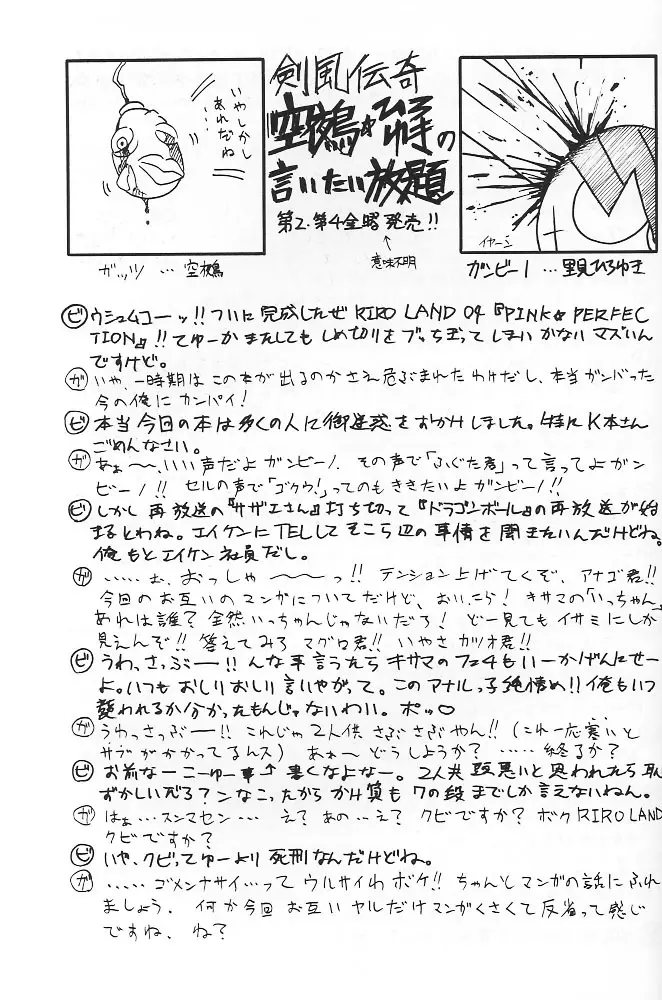 いやしかし
あれだね
ガッツ …空鵺
剣風伝奇
空鵺☆ひろ手の
言いたい放題
第2.第4金曜発売!!
↑
意味不明
イヤーン
ガンビー1…里見ひろゆき
ビ ウシュムコーッ!!ついに完成したぜRIRO LAND 04『PINK☆PERFEC
TION』!!てゆーかまたしてもしめ切りをブッちぎってしまいかないマズいん
ですけど。
ガ いや、一時期はこの本が出るのかさえ危ぶまれたわけだし、本当ガンバった
今の俺にカンパイ!
ビ 本当今回の本は多くの人に御迷惑をおかけしました。特にK本さん
ごめんなさい。
ガ あぁ〜、いい声だよガンビーノ.その声で「ふぐた君」って言ってよガン
ビーノ!!セルの声で「ゴクウ!」ってのもききたいよガンビーノ!!
ビ しかし再放送の『サザエさん』打ち切って『ドラゴンボール』の再放送が始
まるとわね。エイケンにTELしてそこら辺の事情を聞きたいんだけどね。
俺もとエイケン社員だし。
ガ ……ぉ、おっしゃ〜〜っ!!テンション上げてくぞ、アナゴ君!!
今回のお互いのマンガについてだけど、おい、こら!キサマの「いっちゃん」
あれは誰?全然いっちゃんじゃないだろ!どー見てもイサミにしか
見えんぞ!!答えてみろマグロ君!!いやさカツオ君!!
ビ うわ、さっぶー!!んな事言うたらキサマのフェ4もいーかげんにせー
よ。いつもおしりおしり言いやがって。このアナルっ子純情め!!俺もいつ
襲われるか分かったもんじゃないわい。ポッ♡
ガ うわっさっぶー!!これじゃ2人供さぶさぶやん!!(これ一応寒いと
サブがかかってるんス)あぁ〜どうしようか?……終るか?
ビ お前なーこーゆー事↑書くなよなー。2人共頭悪いと思われたら恥
ずかしいだろ?ンなこったからかけ算も7の段までしか言えないねん。
ガ はぁ…スンマセン…え?あの…え?クビですか?ボクRIRO LAND
クビですか?
ビ いや、クビってゆーより死刑なんだけどね。
ガ ……ゴメンナサイ…ってウルサイわボケ!!ちゃんとマンガの話にふれ
ましょう.何か今回お互いヤルだけマンガくさくて反省って感じ
ですね、ね?